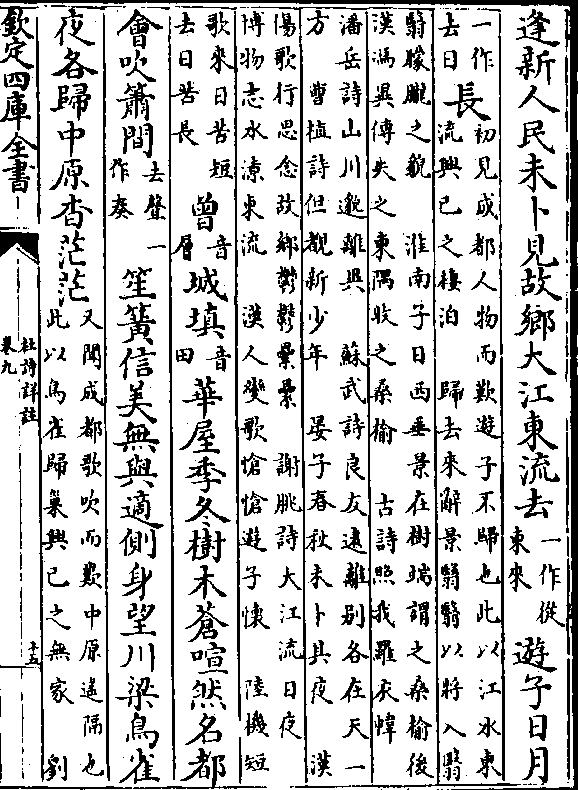 逢新人民未卜見故鄉大江東流去一作從東來遊子日月
一作去日長初見成都人物而歎遊子不歸也此以江水東
流興己之棲泊　歸去來辭景翳翳以將入翳
翳朦朧之貌　淮南子日西垂景在樹端謂之桑榆後
漢馮異傳失之東隅收之桑榆　古詩照我羅衣幃
潘岳詩山川邈離異　蘇武詩良友遠離别各在天一
方　曹植詩但覩新少年　晏子春秋未卜其夜　漢
傷歌行思念故鄉鬱鬱纍纍　謝朓詩大江流日夜
博物志水潦東流　漢人變歌愴愴遊子懷　陸機短
歌來日苦短
去日苦長　曾音層城填音田華屋季冬樹木蒼喧然名都
會吹簫間去聲一作奏笙簧信美無與適側身望川梁鳥雀
夜各歸中原杳茫茫又聞成都歌吹而歎中原遙隔也
此以鳥雀歸巢興己之無家　劉
欽定四庫全書
杜詩詳註
卷九
十五